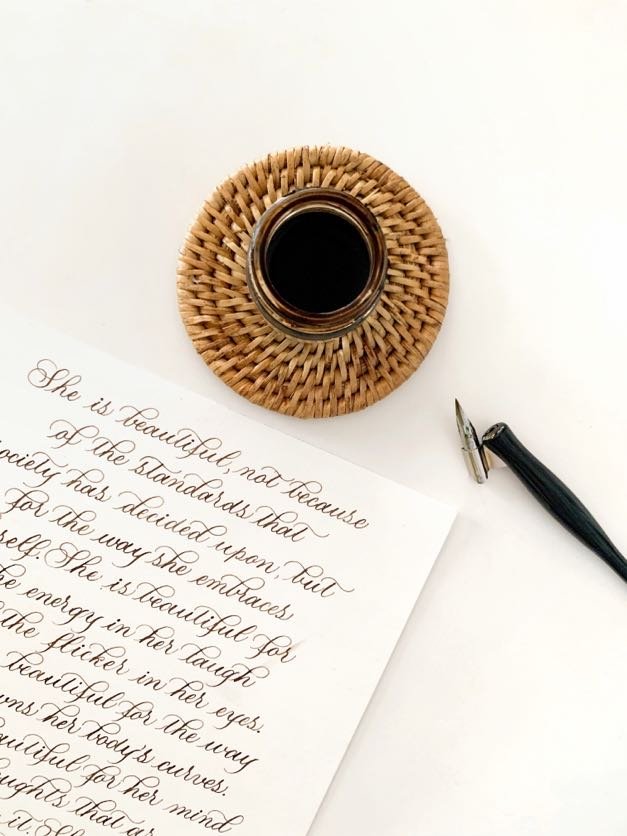 She is beautiful, not because
of the standards that
society has decided upon, but
for the way she embraces
She is beautiful for
the energy in her laugh
the flicker in her eyes.
beautiful for the way
her body's curves.
beautiful for her mind
thoughts that
it.